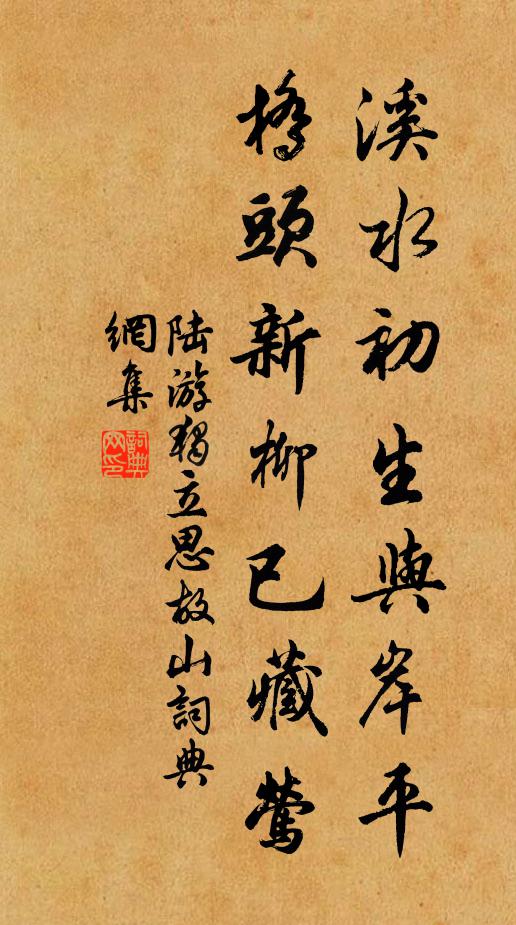 溪水初生與岸平
橋頭新柳已藏鶯
陆游獨立思故山詞典
網集
詞典
网印